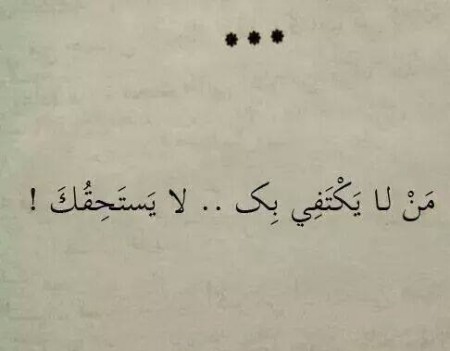 ***
مَنْ لا يَكْتَفِي بِكـ .. لا يَستَحِقُكَ !